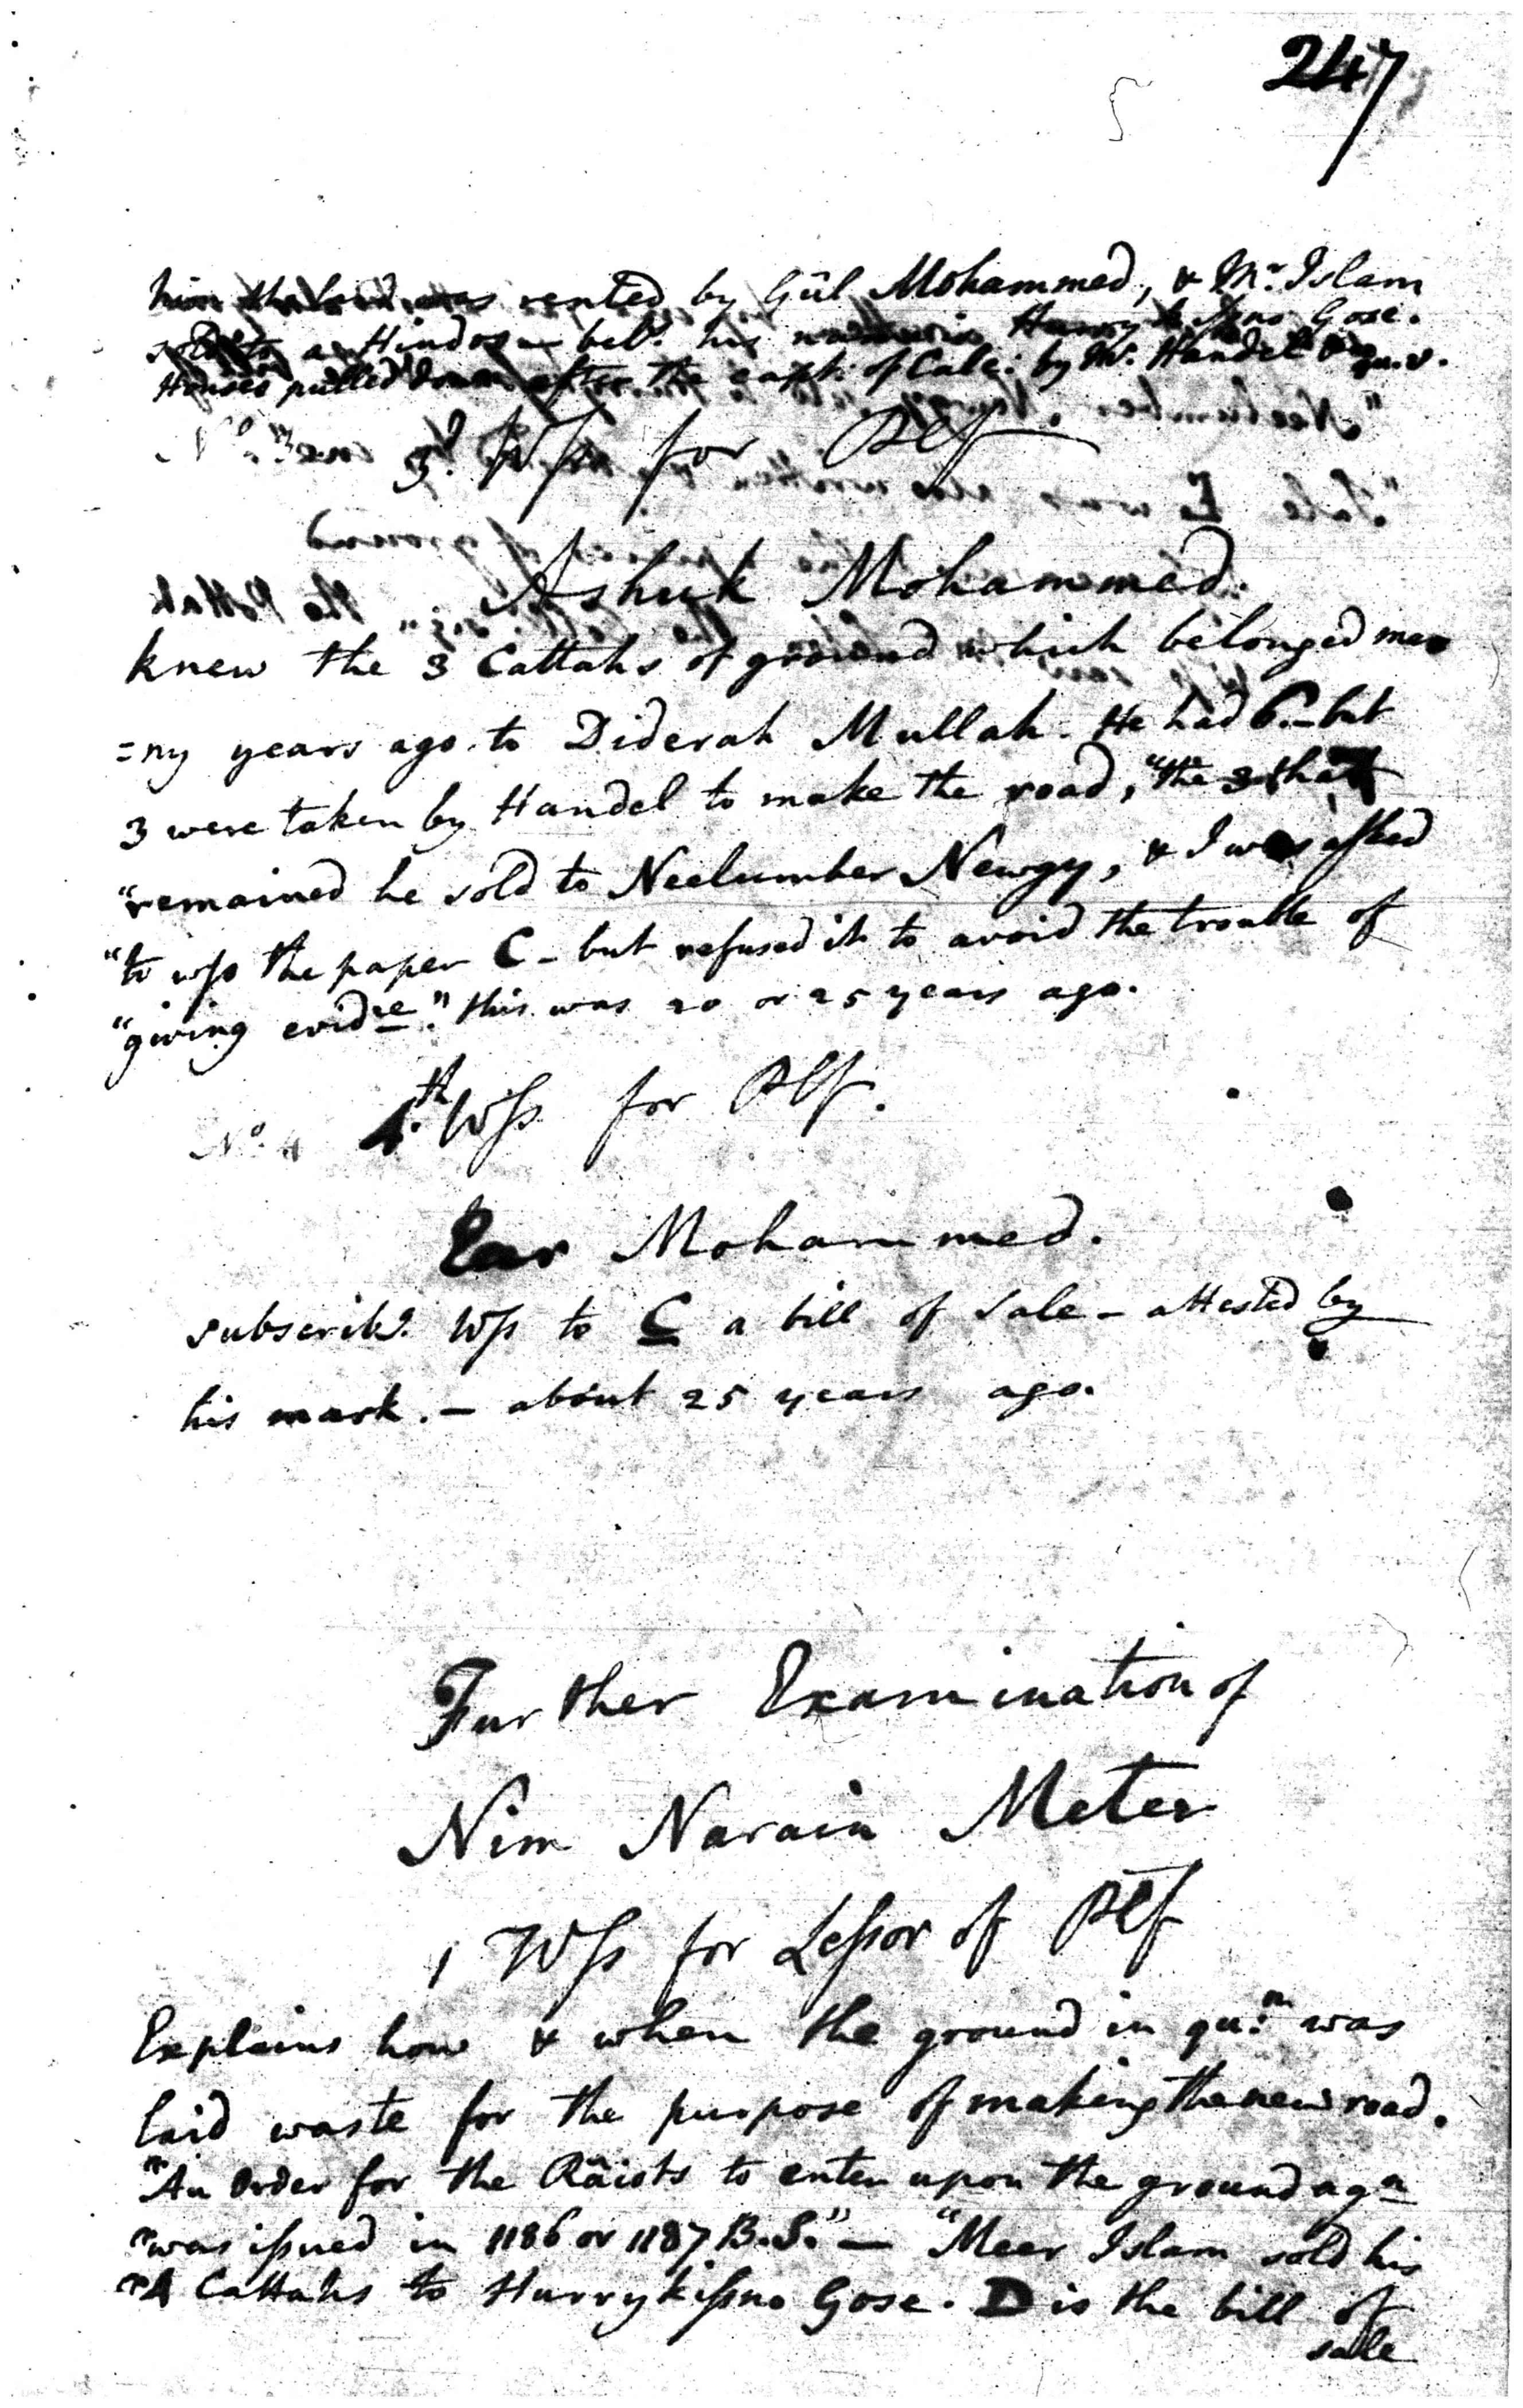 247
him the land was rented by Gûl Mohammed, & Mr. Islam
sold to a Hindoo – bel.d his name is Hurry kissno Gose.
Houses pulled down after the capt: of Calc: by Mr. Handel & qu.v.
No. 3 3d. Wss for Plf
Ashuk Mohammed.
knew the 3 Cattahs of ground which belonged ma
=ny years ago to Diderah Mullah. He had 6.– but
3 were taken by Handel to make the road, "the 3 that
"remained he sold to Neelumber Newgy, & I was asked
"to wss the paper C – but refused it to avoid the trouble of
"giving evidce." this was 20 or 25 years ago.
No. 4 4.th Wss for Plf.
Ear Mohammed.
subscrib.g Wss to C a bill of sale – attested by
his mark. – about 25 years ago.
Further Examination of
Nim Narain Meter
1 Wss for Lessor of Plf
Explains how & when the ground in qu:n was
laid waste for the purpose of making the new road.
"An Order for the Räiots to enter upon the ground agn
"was issued in 1186 or 1187 B.S." – "Meer Islam sold his
"4 Cattahs to Hurrykissno Gose. D is the bill of
sale